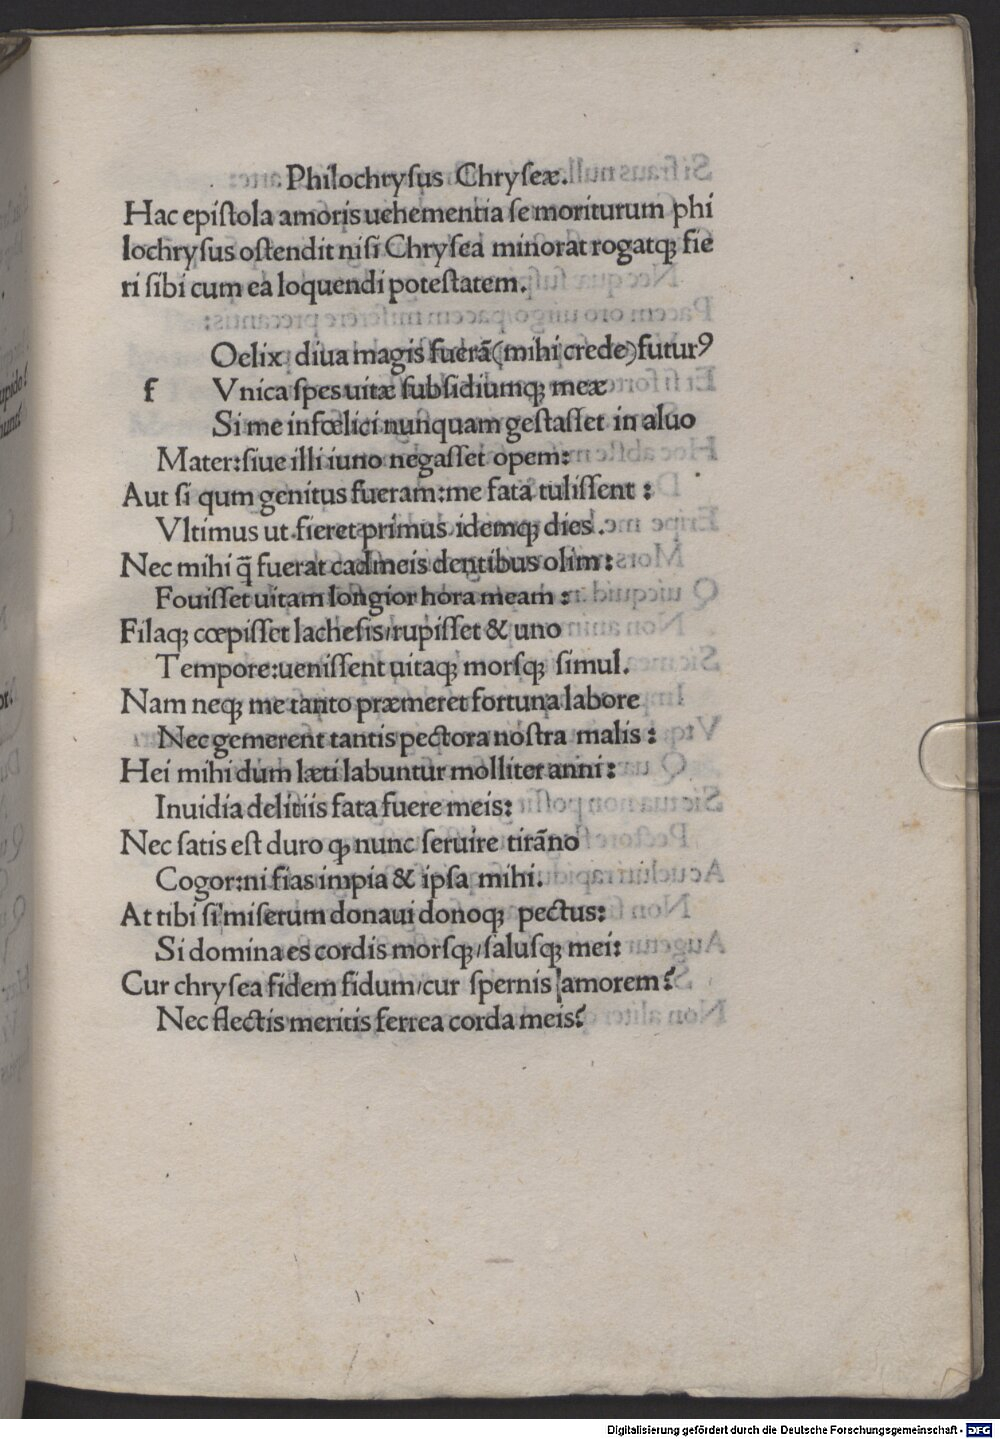 Philochrysus Chryseæ.
Hac epistola amoris uehementia se moriturum phi
lochrysus ostendit nisi Chrysea minorat rogatqꝫ fie
ri sibi cum ea loquendi potestatem.
Oelix diua magis fuerā(mihi crede)futurꝰ
f Vnica spes uitæ subsidiumqꝫ meæ
Si me infœlici nunquam gestasset in aluo
Mater:siue illi iuno negasset opem:
Aut si qum genitus fueram:me fata tulissent:
Vltimus ut fieret primus idemqꝫ dies.
Nec mihi q̄ fuerat cadmeis dentibus olim:
Fouisset uitam longior hora meam:
Filaqꝫ cœpisset lachesis/rupisset & uno
Tempore:uenissent uitaqꝫ morsqꝫ simul.
Nam neqꝫ me tanto præmeret fortuna labore
Nec gemerent tantis pectora nostra malis:
Hei mihi dum læti labuntur molliter anni:
Inuidia delitiis fata fuere meis:
Nec satis est duro qꝫ nunc seruire tirāno
Cogor:ni fias impia & ipsa mihi.
At tibi si miserum donaui donoqꝫ pectus:
Si domina es cordis morsqꝫ/salusqꝫ mei:
Cur chrysea fidem fidum/cur spernis amorem?
Nec flectis meritis ferrea corda meis?
Digitalisierung gefördert durch die Deutsche Forschungsgemeinschaft - DFG